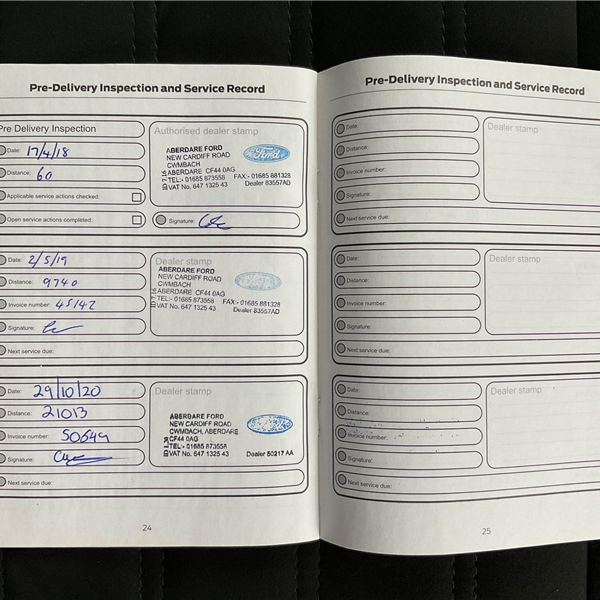 Pre-Delivery Inspection and Service Record
Pre Delivery Inspection
Date: 17/4/18
Distance: 60
Applicable service actions checked:
Open service actions completed:
Authorised dealer stamp
ABERDARE FORD
NEW CARDIFF ROAD
CWMBACH
ABERDARE CF44 0AG
TEL:- 01685 873558 FAX:- 01685 881328
VAT No. 647 1325 43 Dealer 83557AD
Ford
Signature:
Date: 2/5/19
Distance: 9740
Invoice number: 45142
Signature:
Next service due:
Dealer stamp
ABERDARE FORD
NEW CARDIFF ROAD
CWMBACH
ABERDARE CF44 0AG
TEL:- 01685 873558 FAX:- 01685 881328
VAT No. 647 1325 43 Dealer 83557AD
Date: 29/10/20
Distance: 21013
Invoice number: 50649
Signature:
Next service due:
Dealer stamp
ABERDARE FORD
NEW CARDIFF ROAD
CWMBACH, ABERDARE
CF44 0AG
TEL:- 01685 873558
VAT No. 647 1325 43 Dealer 80217 AA
24
Pre-Delivery Inspection and Service Record
Date:
Distance:
Invoice number:
Signature:
Next service due:
Dealer stamp
Date:
Distance:
Invoice number:
Signature:
Next service due:
Dealer stamp
Date:
Distance:
Invoice number:
Signature:
Next service due:
Dealer stamp
25